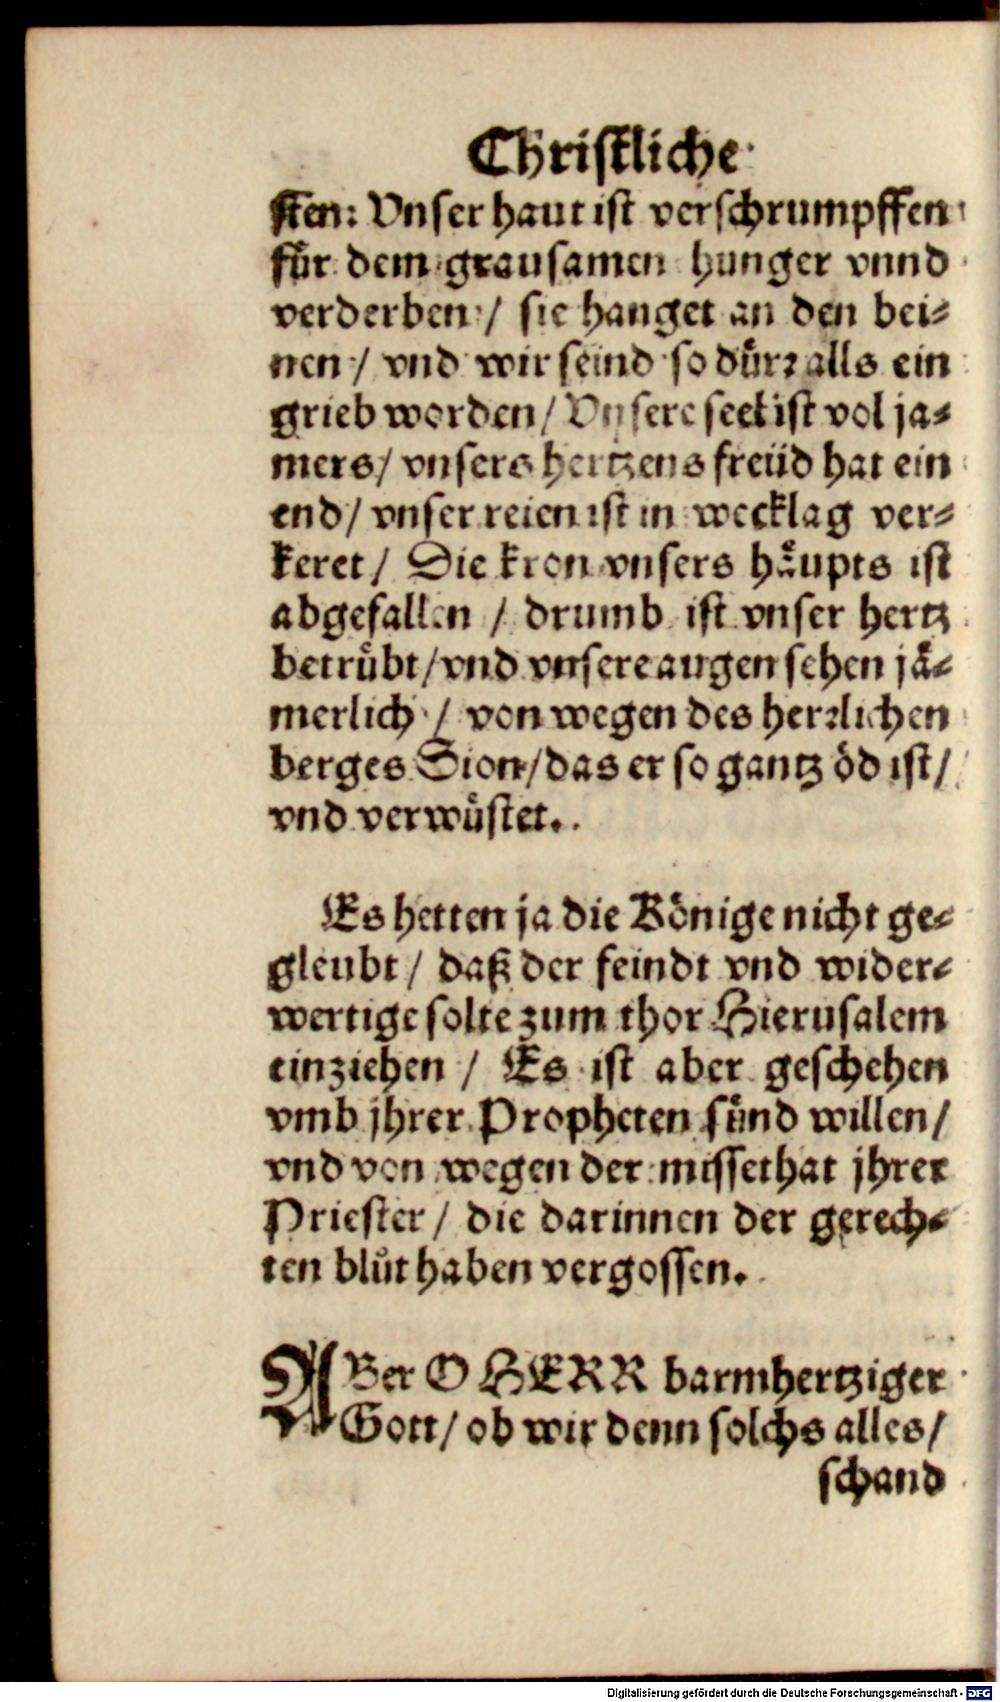 Christliche
sten: Vnser haut ist verschrumpffen
fuͤr dem grausamen hunger vnnd
verderben / sie hanget an den bei⸗
nen / vnd wir seind so duͤrꝛ alls ein
grieb worden / Vnsere seel ist vol ja⸗
mers / vnsers hertzens freüd hat ein
end / vnser reien ist in wecklag ver⸗
keret / Die kron vnsers haͤupts ist
abgefallen / drumb ist vnser hertz
betruͤbt / vnd vnsere augen sehen jaͤ⸗
merlich / von wegen des herꝛlichen
berges Sion / das er so gantz oͤd ist /
vnd verwuͤstet.
Es hetten ja die Koͤnige nicht ge⸗
gleubt / daß der feindt vnd wider⸗
wertige solte zum thor Hierusalem
einziehen / Es ist aber geschehen
vmb jhrer Propheten suͤnd willen /
vnd von wegen der missethat jhrer
Priester / die darinnen der gerech⸗
ten bluͦt haben vergossen.
ABer O HERR barmhertziger
Gott / ob wir denn solchs alles /
schand
Digitalisierung gefördert durch die Deutsche Forschungsgemeinschaft - DFG